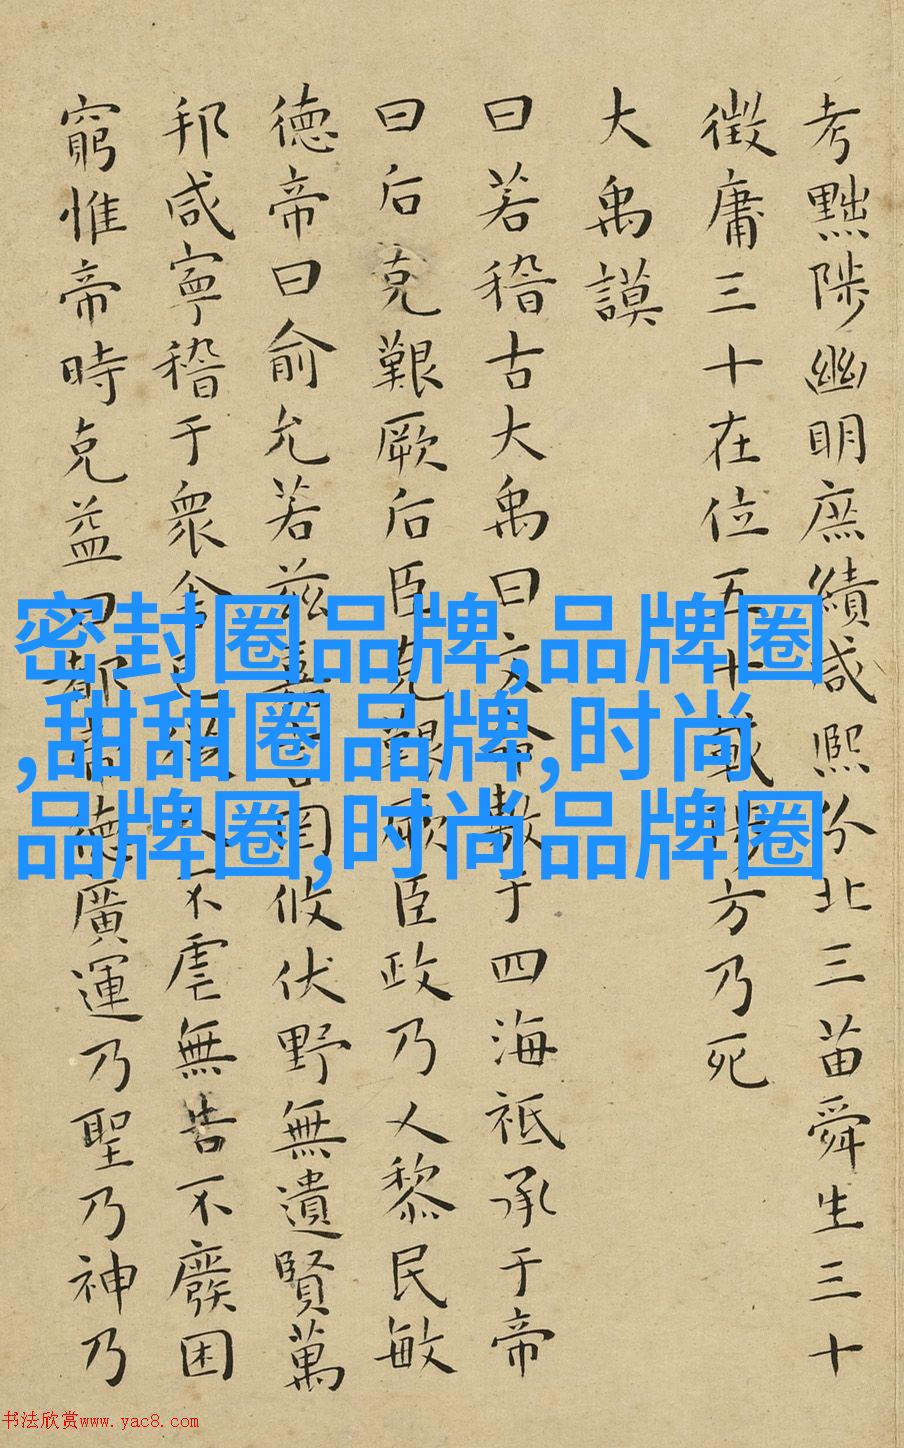 考黜陟幽明庶績咸熙分北三苗舜生三十
徵庸三十在位五十載陟方乃死
大禹謨
曰若稽古大禹曰文命敷于四海祗承于帝
曰后克艱厥后臣克艱厥臣政乃乂黎民敏
德帝曰俞允若茲嘉言罔攸伏野無遺賢萬
邦咸寧稽于衆舍己從人不虐無告不廢困
窮惟帝時克益曰都帝德廣運乃聖乃神乃
密封圈品牌,品牌圈
,甜甜圈品牌,时尚
品牌圈,时尚品牌圈
书法欣赏www.yac8.com